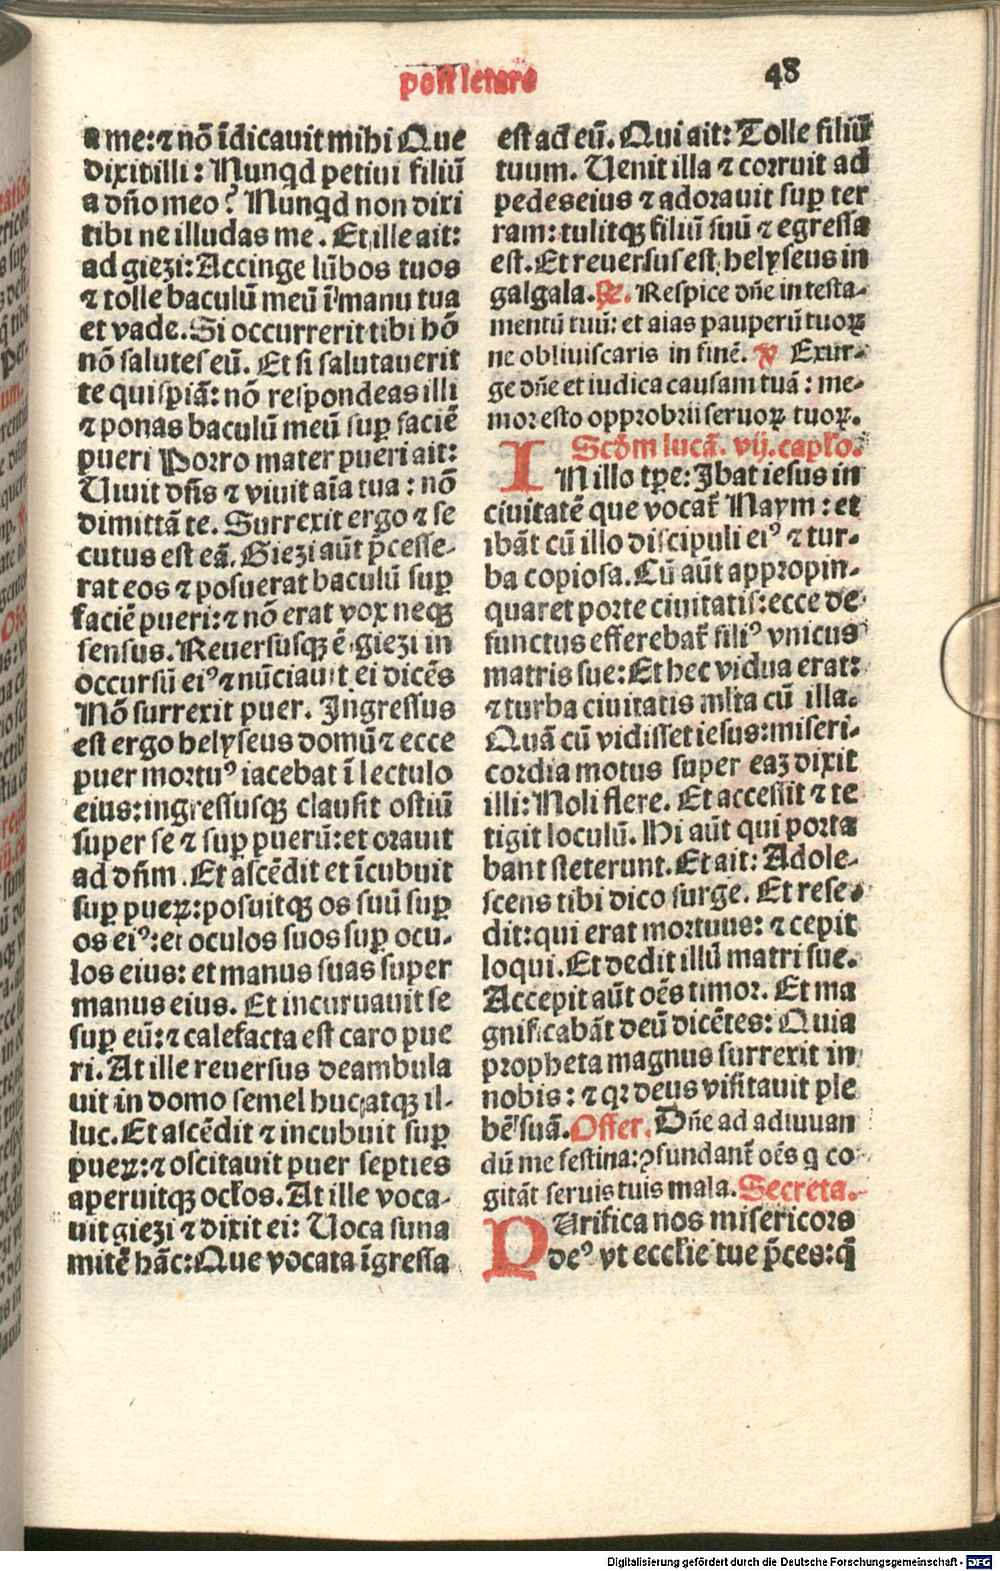 post letare 48
a me: ⁊ nō īdicavit mihi Que
dixit illi: Nunqd petivi filiū
a dn̄o meo? Nunqd non dixi
tibi ne illudas me. Et ille ait:
ad giezi: Accinge lūbos tuos
⁊ tolle baculū meū ī manu tua
et vade. Si occurrerit tibi hō
nō salutes eū. Et si salutaverit
te quispiā: nō respondeas illi
⁊ ponas baculū meū suꝑ faciē
pueri Porro mater pueri ait:
Uivit dn̄s ⁊ vivit aīa tua: nō
dimittā te. Surrexit ergo ⁊ se
cutus est eā. Giezi aūt p̄cesse-
rat eos ⁊ posuerat baculū suꝑ
faciē pueri: ⁊ nō erat vox neqꝫ
sensus. Reversusqꝫ ē giezi in
occursū eiꝰ ⁊ nūciavit ei dicēs
Nō surrexit puer. Ingressus
est ergo helyseus domū ⁊ ecce
puer mortuꝰ iacebat ī lectulo
eius: ingressusqꝫ clausit ostiū
super se ⁊ suꝑ puerū: et oravit
ad dn̄m. Et ascēdit et īcubuit
suꝑ pueꝝ: posuitqꝫ os suū suꝑ
os eiꝰ: et oculos suos suꝑ ocu-
los eius: et manus suas super
manus eius. Et incurvavit se
suꝑ eū: ⁊ calefacta est caro pue
ri. At ille reversus deambula
vit in domo semel huc atqꝫ il-
luc. Et ascēdit ⁊ incubuit suꝑ
pueꝝ: ⁊ oscitavit puer septies
aperuitqꝫ oc̄los. At ille voca-
vit giezi ⁊ dixit ei: Voca suna
mitē hāc: Que vocata īgressa
est ad eū. Qui ait: Tolle filiū
tuum. Venit illa ⁊ corruit ad
pedes eius ⁊ adoravit suꝑ ter
ram: tulitqꝫ filiū suū ⁊ egressa
est. Et reversus est helyseus in
galgala. ℞. Respice dn̄e in testa-
mentū tuū: et aīas pauperū tuoꝝ
ne obliviscaris in finē. ℣ Exur-
ge dn̄e et iudica causam tuā: me-
mor esto opprobrii servoꝝ tuoꝝ.
Scd̄m lucā. vij. capl̄o.
IN illo tꝑe: Ibat iesus in
civitatē que vocat̄ Naym: et
ibāt cū illo discipuli eiꝰ ⁊ tur-
ba copiosa. Cū aūt appropin-
quaret porte civitatis: ecce de
functus efferebat̄ filiꝰ vnicus
matris sue: Et hec vidua erat:
⁊ turba civitatis ml̄ta cū illa.
Quā cū vidisset iesus: miseri-
cordia motus super eaꝫ dixit
illi: Noli flere. Et accessit ⁊ te
tigit loculū. Hi aūt qui porta
bant steterunt. Et ait: Adole-
scens tibi dico surge. Et rese-
dit: qui erat mortuus: ⁊ cepit
loqui. Et dedit illū matri sue.
Accepit aūt oēs timor. Et ma
gnificabāt deū dicētes: Quia
propheta magnus surrexit in
nobis: ⁊ qꝛ deus visitavit ple
bē suā. Offer. Dn̄e ad adiuvan
dū me festina: ꝯfundant̄ oēs q co-
gitāt servis tuis mala. Secreta.
PUrifica nos misericors
deꝰ vt eccl̄ie tue p̄ces: q̄
Digitalisierung gefördert durch die Deutsche Forschungsgemeinschaft - DFG